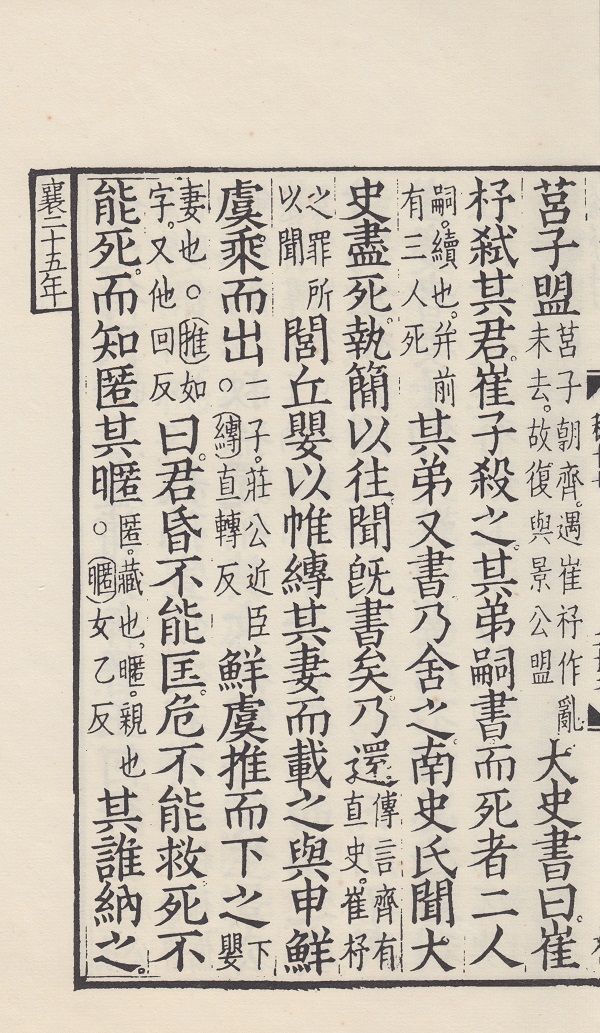 莒子盟莒子朝齊。遇崔杼作亂未去。故復與景公盟大史書曰。崔
杼弒其君。崔子殺之。其弟嗣書而死者二人
嗣。續也。并前有三人死其弟又書。乃舍之。南史氏聞大
史盡死。執簡以往。聞旣書矣。乃還。傳言齊有直史。崔杼
之罪所以聞閭丘嬰以帷縳其妻而載之。與申鮮
虞乘而出○二子。莊公近臣縳直轉反鮮虞推而下之下嬰
妻也○推如字。又他回反曰。君昏不能匡。危不能救。死不
能死。而知匿其暱○匿。藏也。暱。親也暱女乙反其誰納之。
襄二十五年